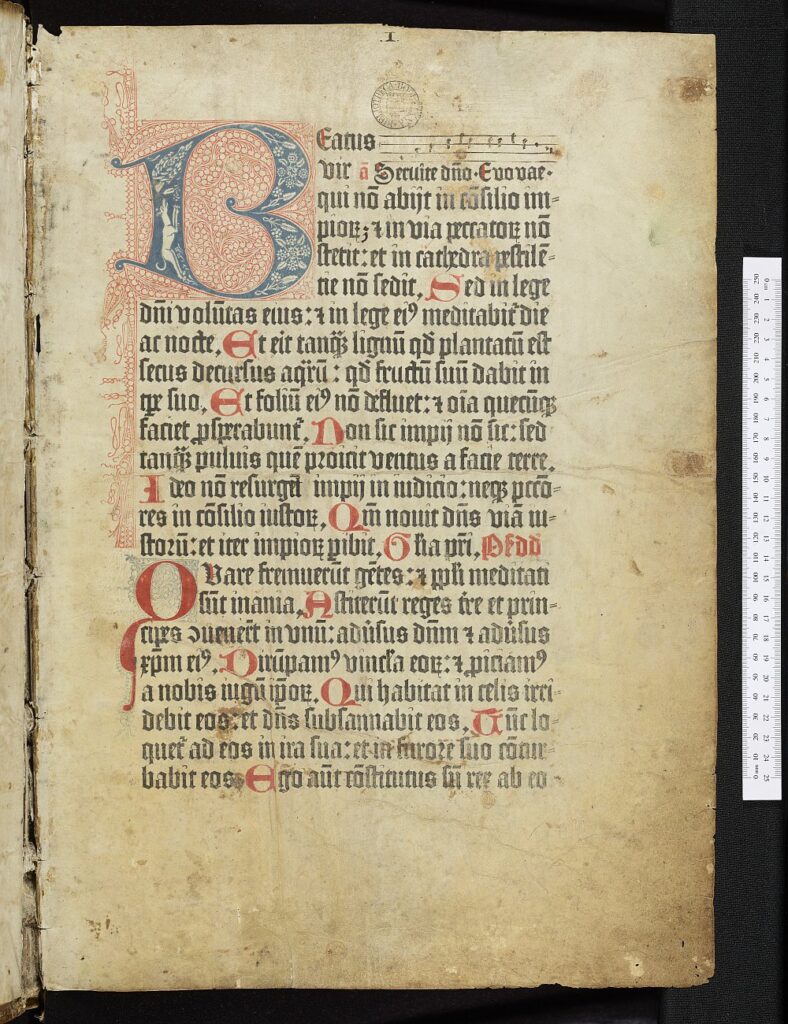 I
Beatus
vir a Seruite dño. Euouae.
qui nō abijt in cōsilio im=
pioꝝ; ⁊ in via peccatoꝝ nō
stetit: et in cathedra pestilē=
tie nō sedit. Sed in lege
dñi volūtas eius: ⁊ in lege eiꝰ meditabit᷑ die
ac nocte. Et erit tanq̄ʒ lignū qd̄ plantatū est
secus decursus aq̄rū: qd̄ fructū suū dabit in
tp̄e suo. Et foliū eiꝰ nō defluet: ⁊ oīa quecūqʒ
faciet ꝓsperabunt᷑. Non sic impij nō sic: sed
tanq̄ʒ puluis quē proicit ventus a facie terre.
Ideo nō resurgēt impij in iudicio: neqʒ pctō=
res in cōsilio iustoꝝ. Qm̄ nouit dñs viā iu=
storū: et iter impioꝝ ꝑibit. Gl̄ia pr̄i.
Quare fremuerūt gētes: ⁊ ppl̄i meditati
sūt inania. Astiterūt reges tr̄e et prin=
cipes ↄuenerūt in vnū: aduersus dñm ⁊ aduersus
xp̄m eiꝰ. Dirūpamꝰ vincl̄a eoꝝ: ⁊ ꝓiciamꝰ
a nobis iugū ip̄oꝝ. Qui habitat in celis irri=
debit eos: et dñs subsannabit eos. Tūc lo=
quet᷑ ad eos in ira sua: et in furore suo cōtur=
babit eos. Ego aūt cōstitutus sū rex ab eo